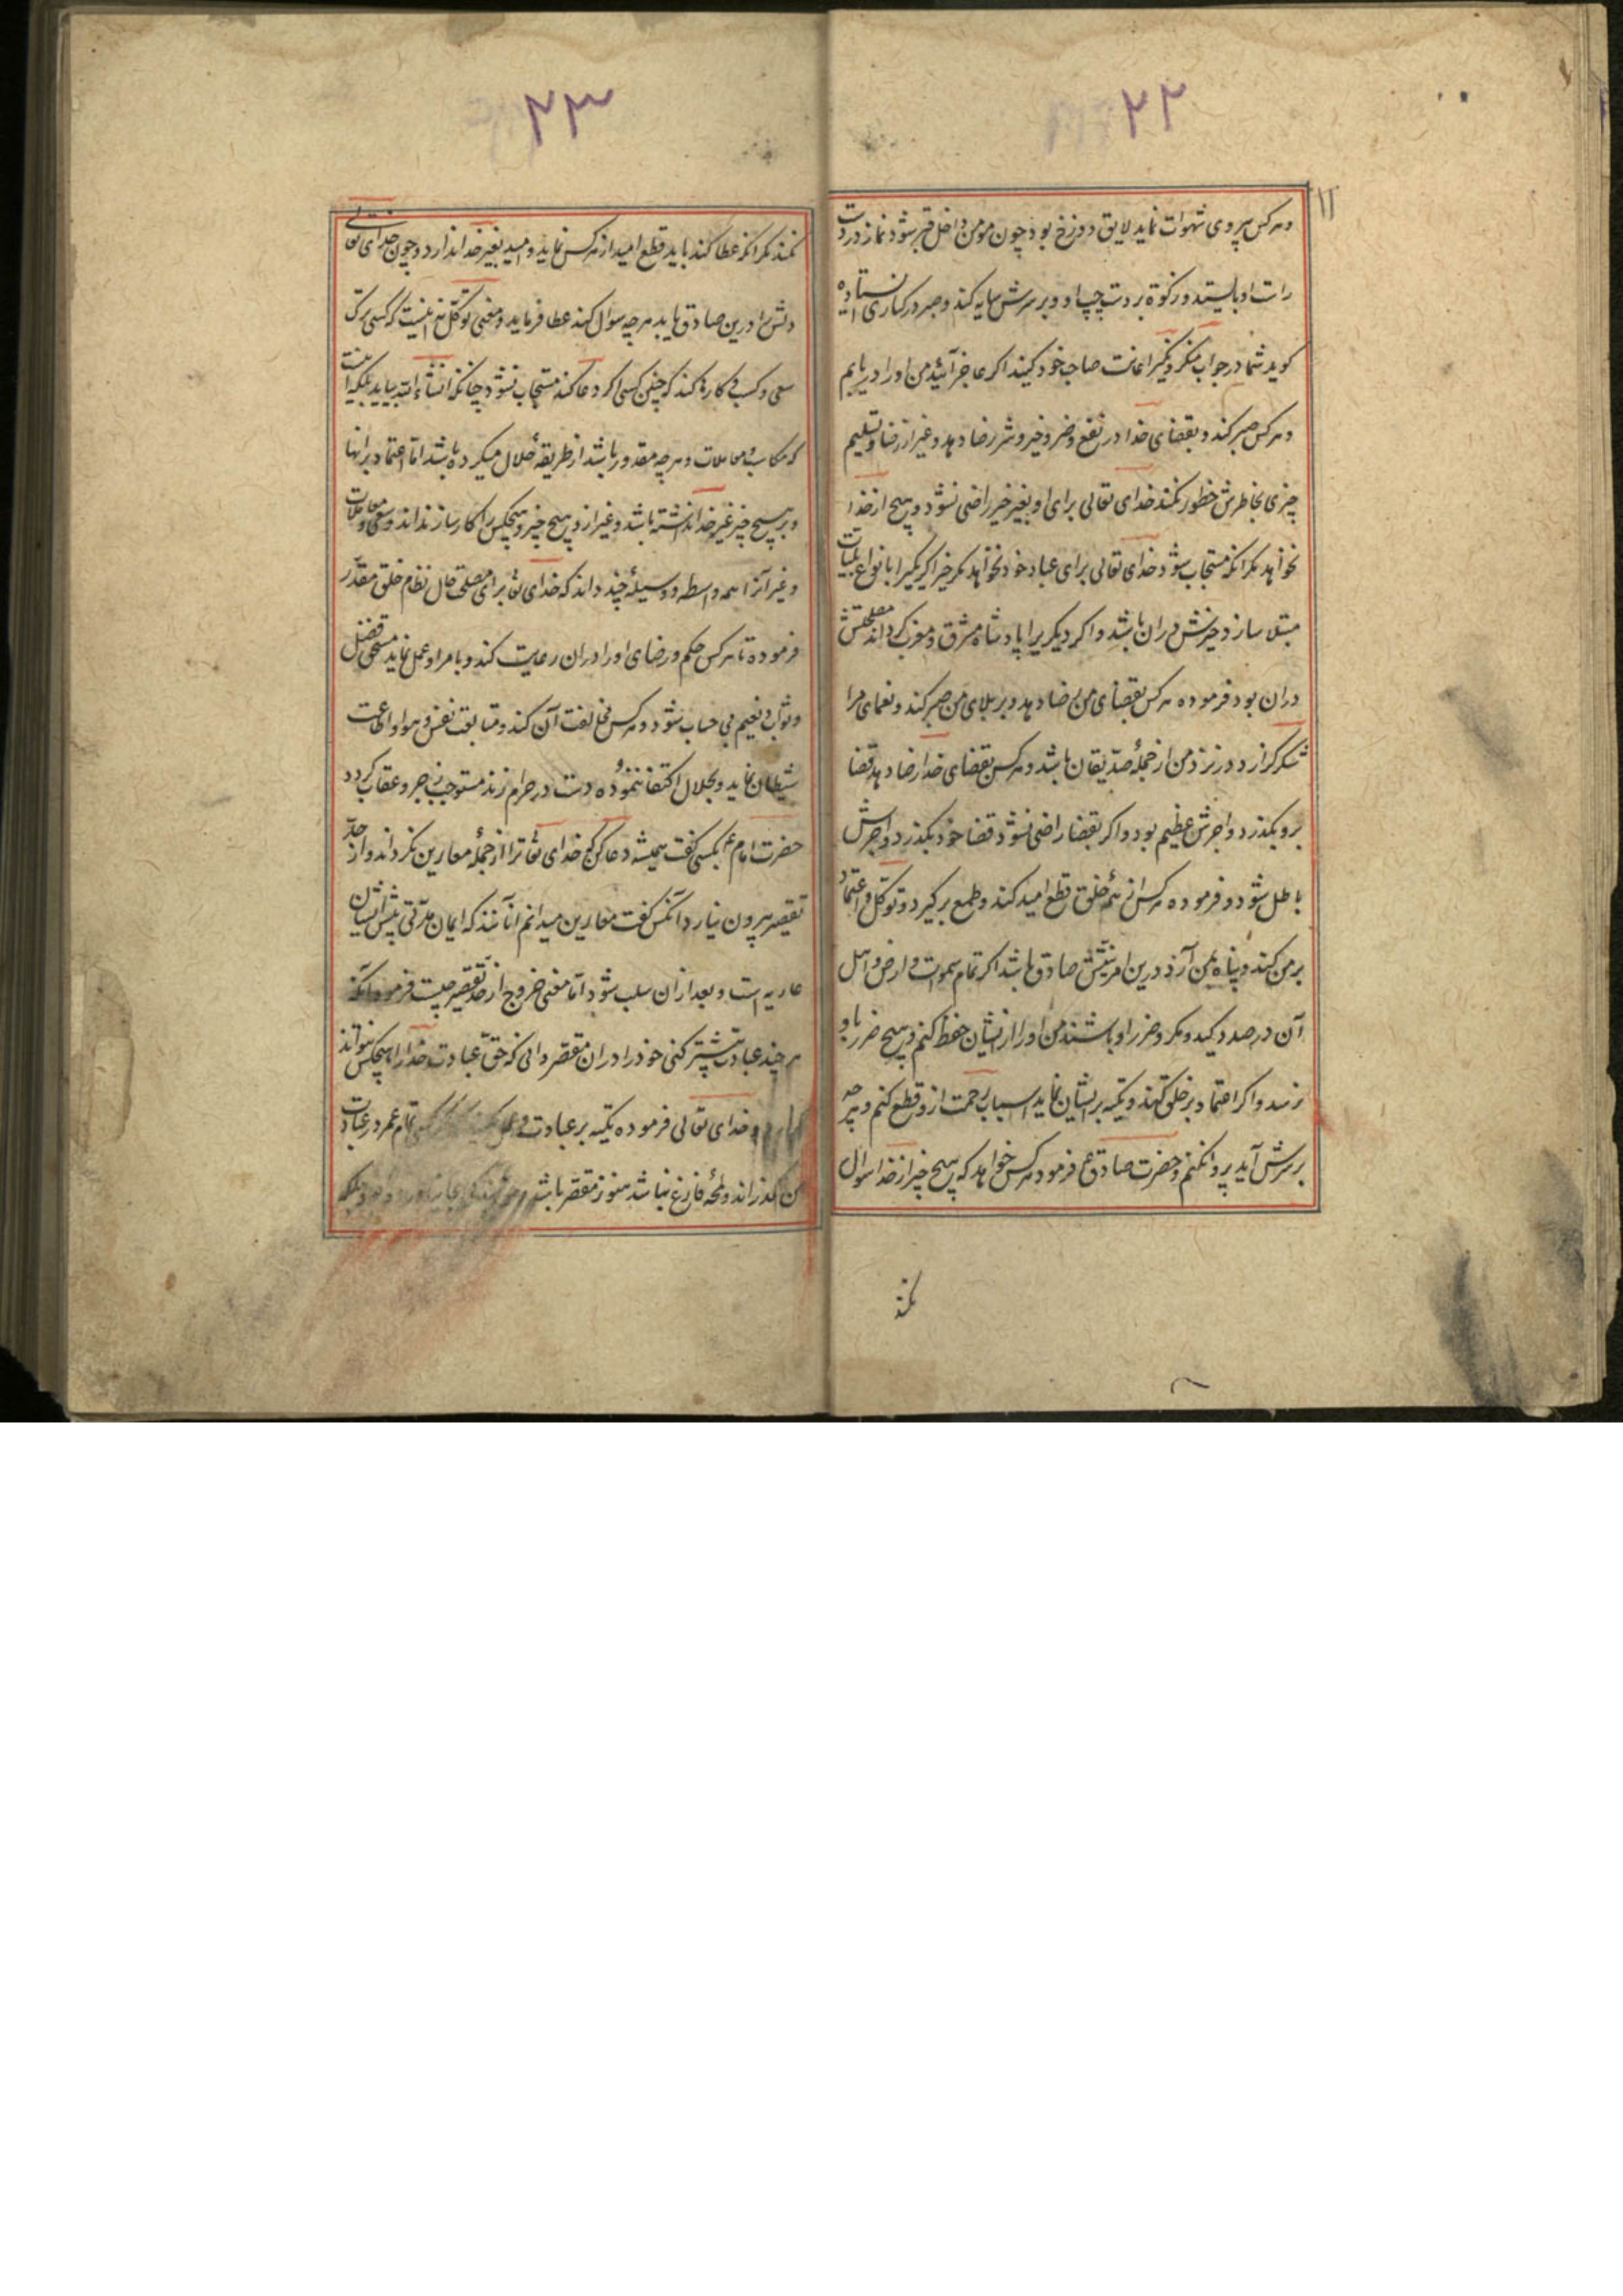 ۲۲
۱۱
و هرکس پیروی شهوات نماید لایق دوزخ بود چون مومن داخل قبر شود نماز در دست
راست او بایستد و زکوة بر دست چپ او و بر سرش سایه کند و صبر در کناری ایستاده
کوید شما در جواب منکر و نکیر اعانت صاحب خود کنید اکر عاجز آئید من او را دریابم
و هرکس صبر کند و بقضای خدا در نفع و ضر و خیر و شر رضا دهد و غیر از رضا و تسلیم
چیزی بخاطرش خطور نکند خدای تعالی برای او بغیر خیر راضی نشود و هیچ از خدا
نخواهد مکر آنکه مستجاب شود خدای تعالی برای عباد خود نخواهد مکر خیر اکر یکیرا بانواع بلیات
مبتلا سازد خیرش در ان باشد و اکر دیکریرا پادشاه مشرق و مغرب کرداند مصلحتش
در ان بود فرموده هرکس بقضای من رضا دهد و بر بلای من صبر کند و نعمای مرا
شکر کزارد در نزد من از جملهٔ صدّیقان باشد و هرکس بقضای خدا رضا دهد قضا
برو بکذرد و اجرش عظیم بود و اکر بقضا راضی نشود قضا خود بکذرد و اجرش
باطل شود و فرموده هرکس از همهٔ خلق قطع امید کند و طمع برکیرد و توکل و اعتماد
بر من کند و پناه بمن آرد و درین امر نیّتش صادق باشد اکر تمام سموات و ارض و اهل
آن در صدد کید و مکر و ضرر او باشند من او را از ایشان حفظ کنم و هیچ ضرر باو
نرسد و اکر اعتماد بر خلق کند و تکیه بر ایشان نماید اسباب رحمت ازو قطع کنم و هرچه
بر سرش آید پروا نکنم و حضرت صادق ع فرمود هرکس خواهد که هیچ چیز از خدا سوال
نکند
۲۳
نکند مکر آنکه عطا کند باید قطع امید از هرکس نماید و امید بغیر خدا ندارد و چون خدای تعا
دلش را درین صادق یابد هرچه سوال کند عطا فرماید و معنی توکل نه اینست که کسی ترک
سعی و کسب و کارها کند که چنین کسی اکر دعا کند مستجاب نشود چنانکه انشاء الله بیاید بلکه اینست
که مکاسب و معاملات و هرچه مقدور باشد از طریقهٔ حلال میکرده باشد امّا اعتماد بر انها
و بر هیچ چیز غیر خدا نداشته باشد و غیر ازو هیچ چیز و هیچکس را کارساز نداند و سعی و معاملات
و غیر آنرا همه واسطه و وسیلهٔ چند داند که خدای تعا برای مصلحت حال نظام خلق مقدّر
فرموده تا هرکس حکم و رضای او را در ان رعایت کند و بامر او عمل نماید مستحق فضل
و ثواب و نعیم بی حساب شود و هرکس مخالفت آن کند و متابعت نفس و هوا و اطاعت
شیطان نماید و بحلال اکتفا ننموده دست در حرام زند مستوجب زجر و عقاب کردد
حضرت امام ع بکسی کفت همیشه دعا کن که خدای تعا ترا از جملهٔ معارین نکرداند و از حدّ
تقصیر بیرون نیارد آنکس کفت معارین میدانم آنانند که ایمان مدّتی پیش ایشان
عاریه است و بعد از ان سلب شود امّا معنی خروج از حدّ تقصیر چیست فرمود آنکه
هر چند عبادت بیشتر کنی خود را در ان مقصر دانی که حقّ عبادت خدا را هیچکس نتواند
خدای تعالی فرموده تکیه بر عبادت و عمل تمام عمر در عبادت
من بکذراند و لمحهٔ فارغ نباشد هنوز مقصر باشد